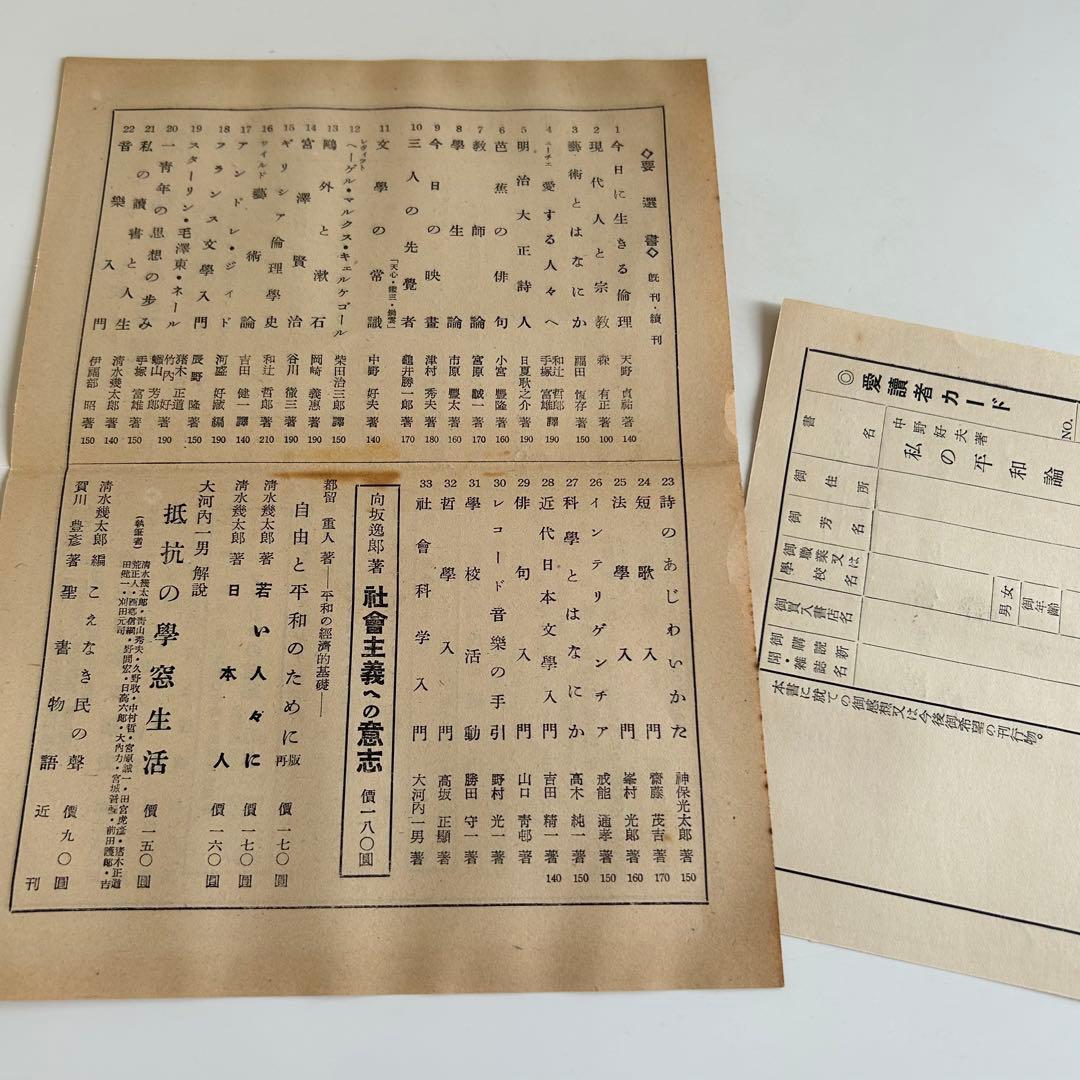 ◇要選書◇ 既刊・續刊
1 今日に生きる倫理 天野貞祐著 140
2 現代人と宗教 森有正著 100
3 藝術とはなにか 福田恆存著 150
4 ニーチェ 愛する人々へ 和辻哲郎 手塚富雄譯 190
5 明治大正詩人 日夏耿之介著 190
6 芭蕉の俳句 小宮豐隆著 160
7 教師論 宮原誠一著 160
8 學生論 市原豐太著 180
9 今日の映畫 津村秀夫著 160
10 三人の先覺者 「天心・鑑三・鍋雲」 龜井勝一郎著 170
11 文學の常識 中野好夫著 140
12 レヴィット ヘーゲル・マルクス・キェルケゴール 柴田治三郎譯 150
13 鷗外と漱石 岡崎義惠著 190
14 宮澤賢治 谷川徹三著 190
15 ギリシア倫理學史 和辻哲郎著 210
16 ワイルド 藝術論 吉田健一譯 140
17 アンドレ・ジイド 河盛好藏編 190
18 フランス文學入門 辰野隆著 150
19 スターリン・毛澤東・ネール 猪木正道 竹内好 蠟山芳郎著 190
20 一青年の思想の歩み 手塚富雄著 150
21 私の讀書と人生 清水幾太郎著 140
22 音樂入門 伊福部昭著 150
23 詩のあじわいかた 神保光太郎著 150
24 短歌入門 齋藤茂吉著 170
25 法學入門 峯村光郎著 160
26 インテリゲンチァ 戒能通孝著 150
27 科學とはなにか 高木純一著 150
28 近代日本文學入門 吉田精一著 140
29 俳句入門 山口青邨著
30 レコード音樂の手引 野村光一著
31 學校活動 勝田守一著
32 哲學入門 高坂正顯著
33 社會科学入門 大河内一男著
向坂逸郎著 社會主義への意志 價一八〇圓
都留重人著 ――平和の經濟的基礎――
自由と平和のために 再版 價一七〇圓
清水幾太郎著 若い人々に 價一七〇圓
清水幾太郎著 日本人 價一六〇圓
大河内一男 解説
抵抗の學窓生活 價一五〇圓
(執筆者) 清水幾太郎・青山秀夫・久野收・中村哲・宮原誠一・田宮虎彦・猪木正道
荒正人・西郷信綱・野間宏・日高六郎・大内力・宮城音彌・前田護郎・吉
田健一・刈田元司
清水幾太郎編 こえなき民の聲 價九〇圓
賀川豊彦著 聖書物語 近刊
◎愛讀者カード
NO.
書名 中野好夫著 私の平和論
御住所
御芳名
御職業又は學校名
男女
御年齡
御買入書店名
御購読新聞・雑誌名
本書に就ての御感想又は今後御希望の刊行物。